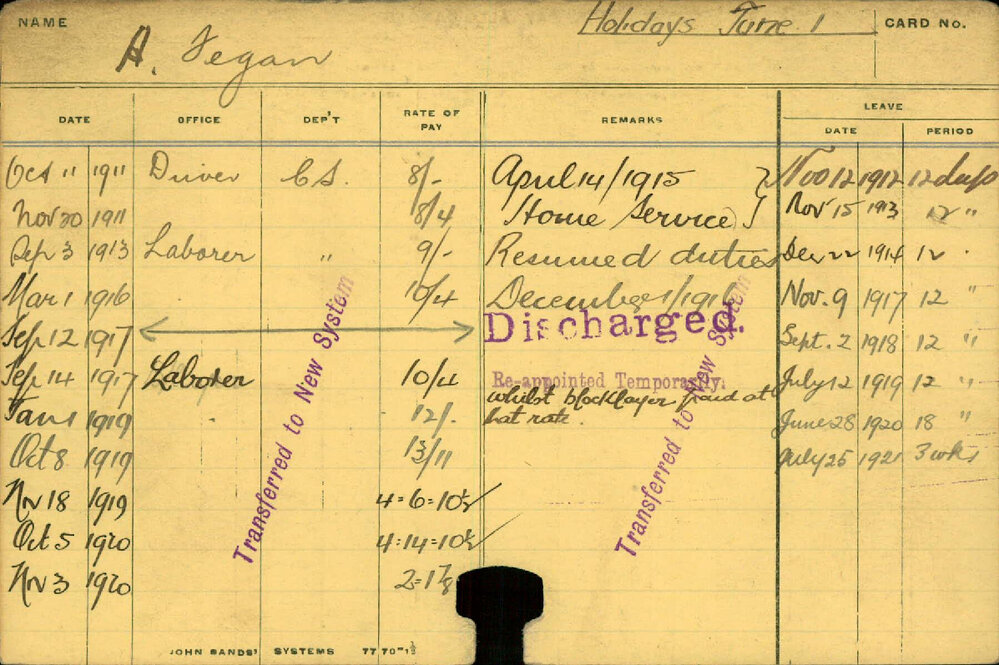 NAME
A. Fegan
Holidays June 1
CARD No.
DATE OFFICE DEP'T RATE OF PAY REMARKS LEAVE
DATE PERIOD
Oct 11 1911 Driver C.S. 8/- April 14/1915 Nov 12 1912 12 days
Nov 20 1911 8/4 Home Service Nov 15 1913 12 "
Sep 3 1913 Laborer " 9/- Resumed duties Dec 22 1914 12 "
Mar 1 1916 10/4 December 1/191 Nov. 9 1917 12 "
Sep 12 1917 Discharged. Sept. 2 1918 12 "
Sep 14 1917 Laborer 10/4 Re-appointed Temporarily. July 12 1919 12 "
whilst blocklayer paid at
that rate.
Jan 1 1919 12/- June 28 1920 18 "
Oct 8 1919 13/11 July 25 1921 3 wks
Nov 18 1919 4=6=10½
Oct 5 1920 4=14=10½
Nov 3 1920 2=1⅞
Transferred to New System
Transferred to New System
JOHN SANDS' SYSTEMS 7770"